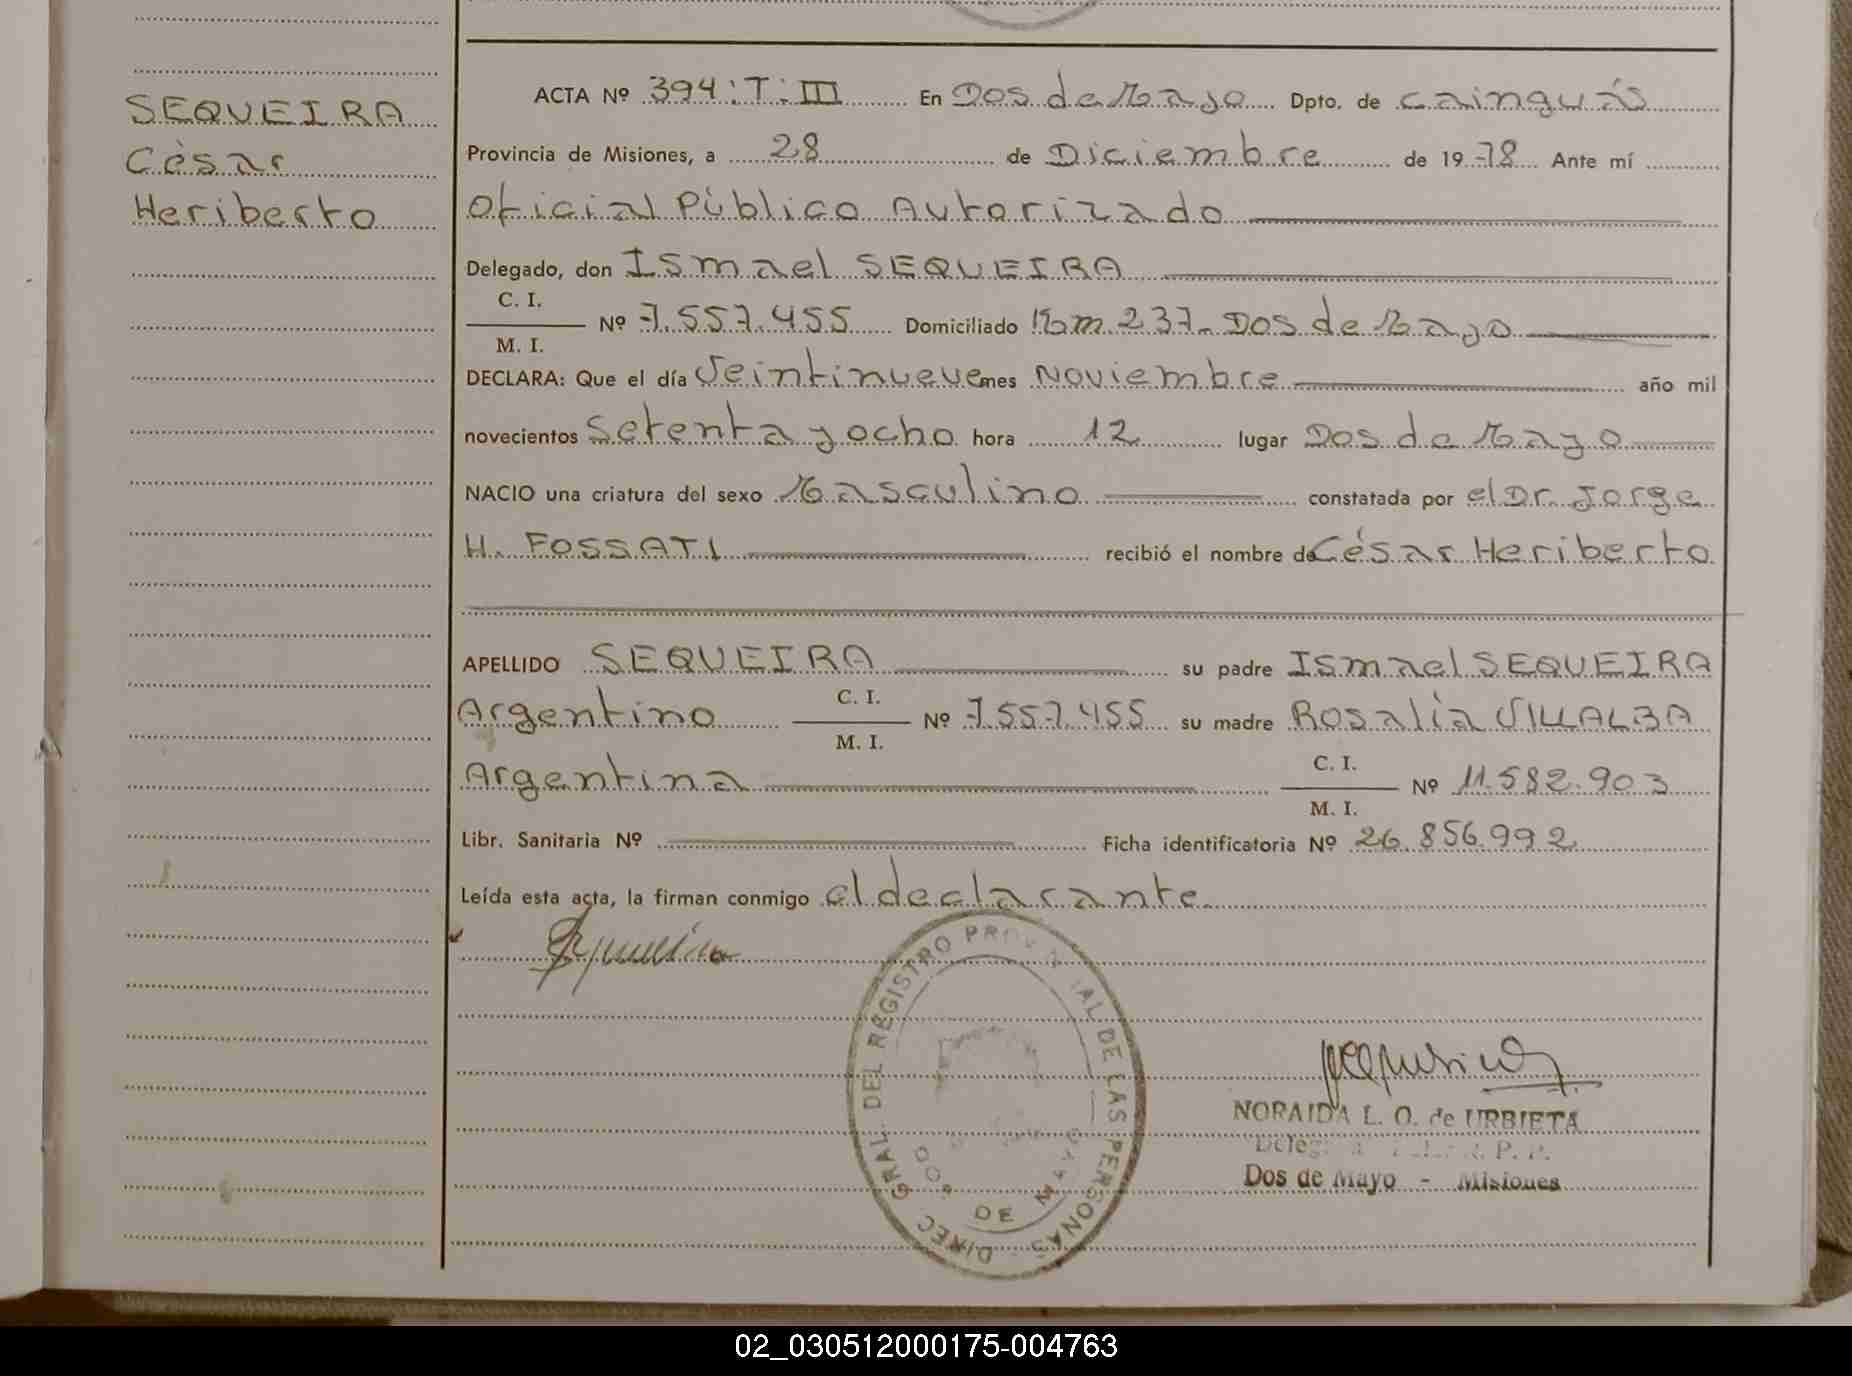 SEQUEIRA
César
Heriberto
ACTA Nº 394:T:III En Dos de Mayo Dpto. de Cainguás
Provincia de Misiones, a 28 de Diciembre de 1978 Ante mí
Oficial Público Autorizado
Delegado, don Ismael SEQUEIRA
C. I.
M. I.
Nº 7.557.455 Domiciliado Km 237. Dos de Mayo
DECLARA: Que el día Veintinueve mes Noviembre año mil
novecientos Setenta y ocho hora 12 lugar Dos de Mayo
NACIO una criatura del sexo Masculino constatada por el Dr. Jorge
H. FOSSATI recibió el nombre de César Heriberto
APELLIDO SEQUEIRA su padre Ismael SEQUEIRA
Argentino C. I. M. I. Nº 7.557.455 su madre Rosalía VILLALBA
Argentina C. I. M. I. Nº 11.582.903
Libr. Sanitaria Nº Ficha identificatoria Nº 26.856.992
Leída esta acta, la firman conmigo el declarante.
DIREC GRAL. DEL REGISTRO PROVINCIAL DE LAS PERSONAS
DOS DE MAYO
NORAIDA L. O. de URBIETA
Dos de Mayo - Misiones
02_030512000175-004763